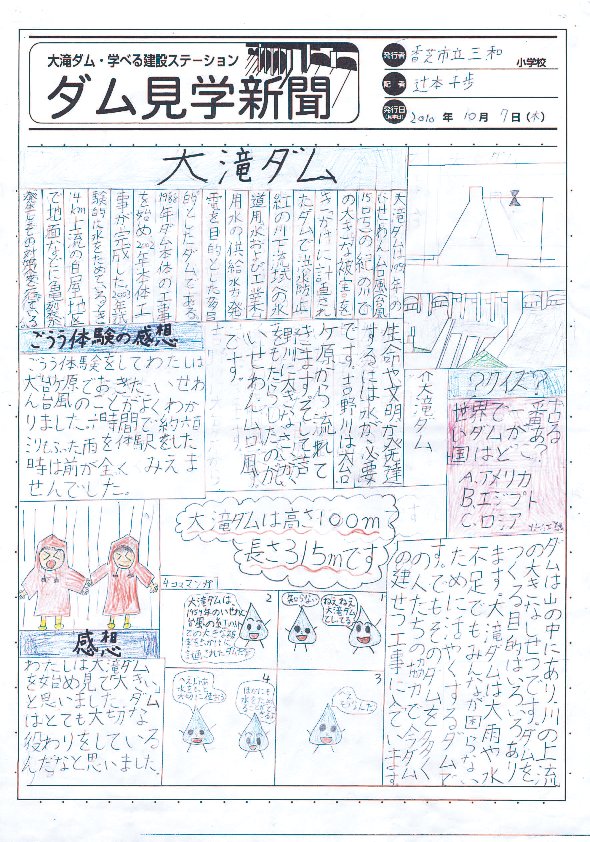 大滝ダム・学べる建設ステーション
ダム見学新聞
発行者 香芝市立三和 小学校
記者 辻本千歩
発行日 2010年10月7日(木)
大滝ダム
大滝ダムは1959年の
いせわん台風
15号の紀の川で
の大きな被害を
きっかけに計画され
たダムで洪水防止
紀の川下流域の水
道用水および工業
用水の供給水力発
電を目的とした多目
的としたダムである。
1988年ダム本体の工事
を始め2002年本体工
事が完成した。2003年
験的に水をためているとき
4km上流の白屋地区
で地面などに亀裂が
発生しその対策を行っている
ごうう体験の感想
ごうう体験をしてわたしは
大台ケ原でおきた、いせわ
ん台風のことがよくわか
りました。一時間で約
ふった雨を体験をした
時は前が全く みえま
せんでした。
生命や文明が発達
するには水が必要
です。吉野川は大台
ケ原から流れて
きます。そして吉
野川に大きなさいがい
をもたらしたのが
いせわん台風
です。
大滝ダム
?クイズ?
世界で一番古
いダムがある
国はどこ?
A.アメリカ
B.エジプト
C.ロシア
大滝ダムは高さ100m
長さ315mです
感想
わたしは大滝ダム
を始め見て「大きい」
と思いました。ダム
はとても大切な
役わりをしている
んだなと思いました。
4コマンガ
1
ねえねえ
大滝ダム
知らない
2
大滝ダムは、
1959年のいせわん
台風
での大きな被
3
4
ダムは山の中にあり、川の上流
の大きなしせつです。ダムを
つくる目的はいろいろあり
ます。大滝ダムは大雨や水
不足でもみんなが困らない
ために活やくするダムで
す。でもそのダムを多く
の人たちの協力で今ダム
の建せつ工事に入っています。